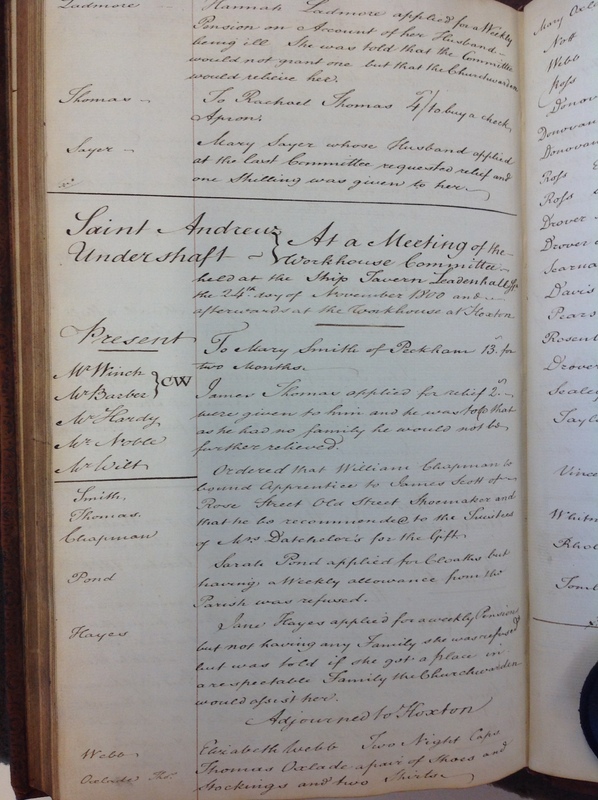 Ladmore Hannah Ladmore applied for a Weekly
Pension on Account of her Husband
being ill She was told that the Committee
would not grant one but that the Churchwarden
would relieve her.
Thomas To Rachael Thomas 4/ to buy a check
Apron.
Sayer Mary Sayer whose Husband applied
at the last Committee requested relief and
one Shilling was given to her
Saint Andrew
Undershaft
At a Meeting of the
Workhouse Committee
held at the Ship Tavern Leadenhall
the 24th day of November 1800 and
afterwards at the Workhouse at Hoxton
Present
Mr Winch
Mr Barber
CW
Mr Hardy
Mr Noble
Mr Wilt
To Mary Smith of Peckham 13s. for
two Months.
James Thomas applied for relief 2s
were given to him and he was told that
as he had no family he would not be
further relieved.
Smith.
Thomas.
Chapman
Ordered that William Chapman be
bound Apprentice to James Scott of
Rose Street Old Street Shoemaker and
that he be recommended to the Trustees
of Mrs Datchelor's for the Gift
Pond Sarah Pond applied for Cloaths but
having a Weekly allowance from the
Parish was refused.
Hayes Jane Hayes applied for a weekly Pension
but not having any Family she was refused
but was told if she got a place in
a respectable Family the Churchwarden
would assist her.
Adjourned to Hoxton
Webb Elizabeth Webb Two Night Caps
Oxlade Thos. Thomas Oxlade a pair of Shoes and
Stockings and two Shirts
Mary
Nott
Webb
Ross
Donov
Donovan
Donovan
Ross
Ross
Drover
Drover
Davis
Pears
Rosen
Drover
Sealey
Tayl
Vince
Whitm